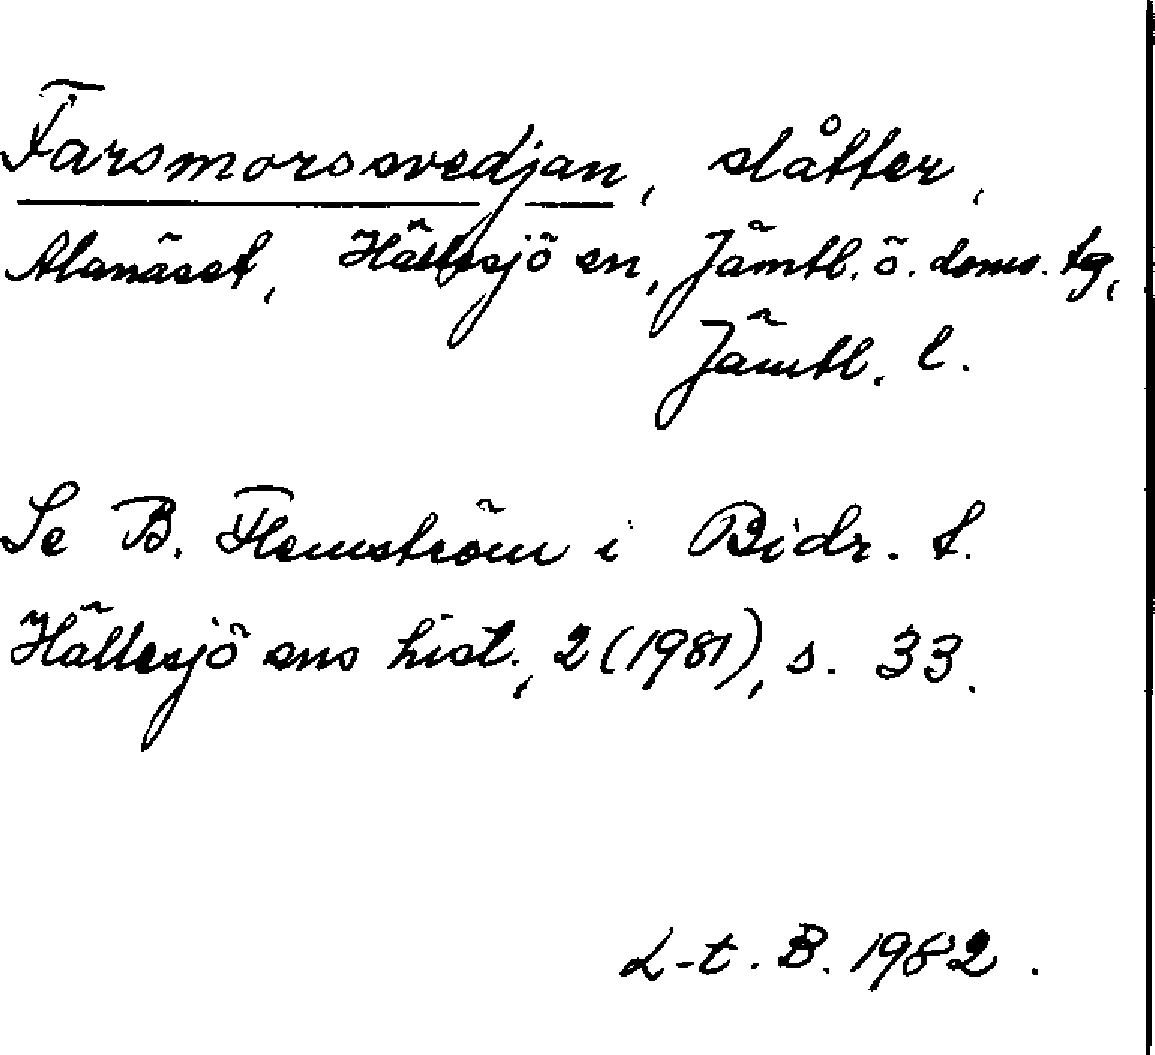 Farsmorssvedjan, slåtter,
Alanäset, Hällesjö sn, Jämtl. ö. doms. tg,
Jämtl. l.
Se B. Flemström i Bidr. t.
Hällesjö sns hist., 2 (1981), s. 33.
L-t. B. 1982.